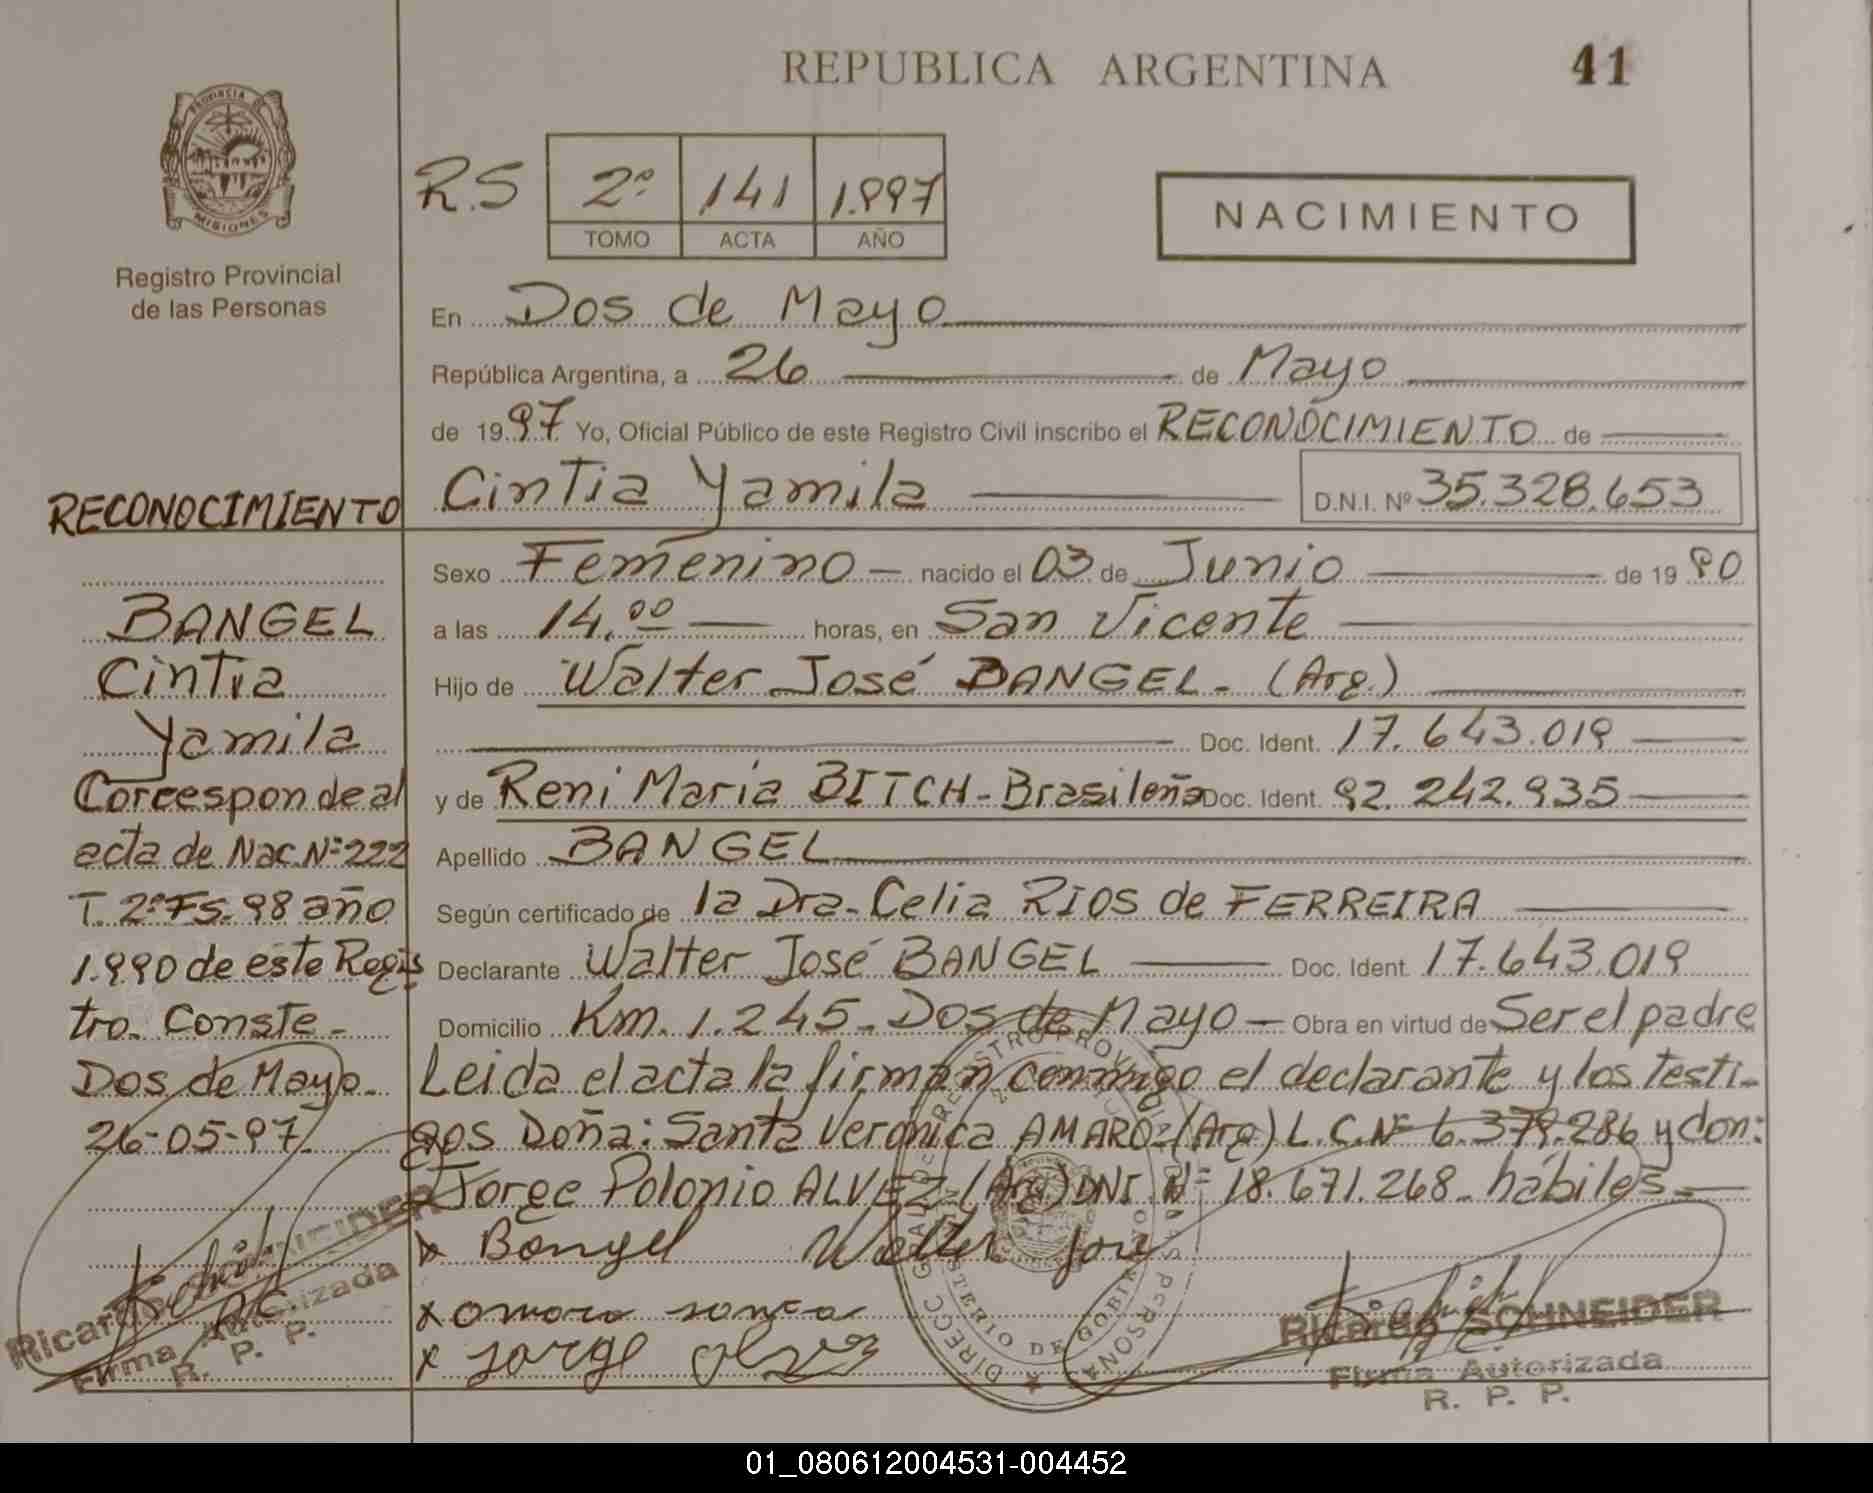 REPUBLICA ARGENTINA
41
PROVINCIA DE
MISIONES
Registro Provincial
de las Personas
R.S
2º 141 1.997
TOMO ACTA AÑO
NACIMIENTO
En Dos de Mayo
República Argentina, a 26 de Mayo
de 1997 Yo, Oficial Público de este Registro Civil inscribo el RECONOCIMIENTO de
Cintia Yamila D.N.I. Nº 35.328.653
Sexo Femenino nacido el 03 de Junio de 1990
a las 14.00 horas, en San Vicente
Hijo de Walter José BANGEL - (Arg.)
Doc. Ident. 17.643.019
y de Reni María BITCH - Brasileña Doc. Ident. 92.242.935
Apellido BANGEL
Según certificado de la Dra. Celia RIOS de FERREIRA
Declarante Walter José BANGEL Doc. Ident. 17.643.019
Domicilio Km. 1.245 - Dos de Mayo - Obra en virtud de Ser el padre
Leida el acta la firman conmigo el declarante y los testi-
gos Doña: Santa Verónica AMARO - (Arg) L.C. Nº 6.379.286 y don:
Jorge Polonio ALVEZ (Arg) DNI. Nº 18.671.268 - hábiles -
x Bangel Walter Jose
x amaro santa
x jorge alvez
RECONOCIMIENTO
BANGEL
Cintia
Yamila
Corresponde al
acta de Nac. Nº 222
T. 2º Fs. 98 año
1.990 de este Regis
tro. Conste -
Dos de Mayo -
26-05-97.
Ricardo SCHNEIDER
Firma Autorizada
R. P. P.
Ricardo SCHNEIDER
Firma Autorizada
R. P. P.
01_080612004531-004452